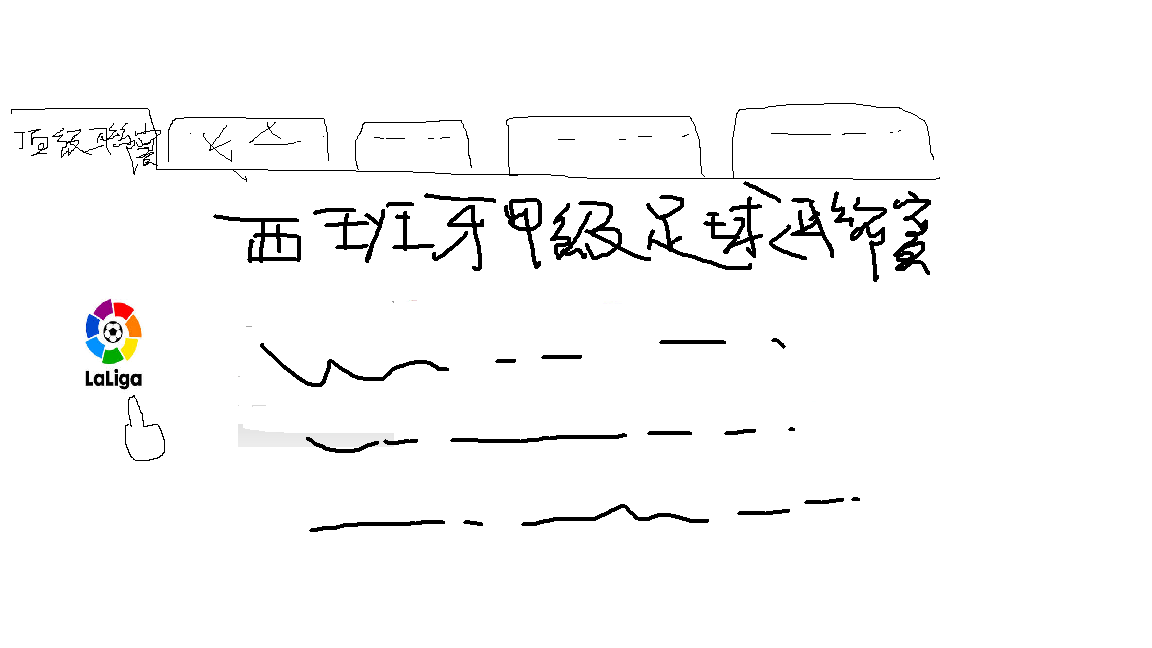 頂級聯賽
西班牙甲級足球聯賽
LaLiga